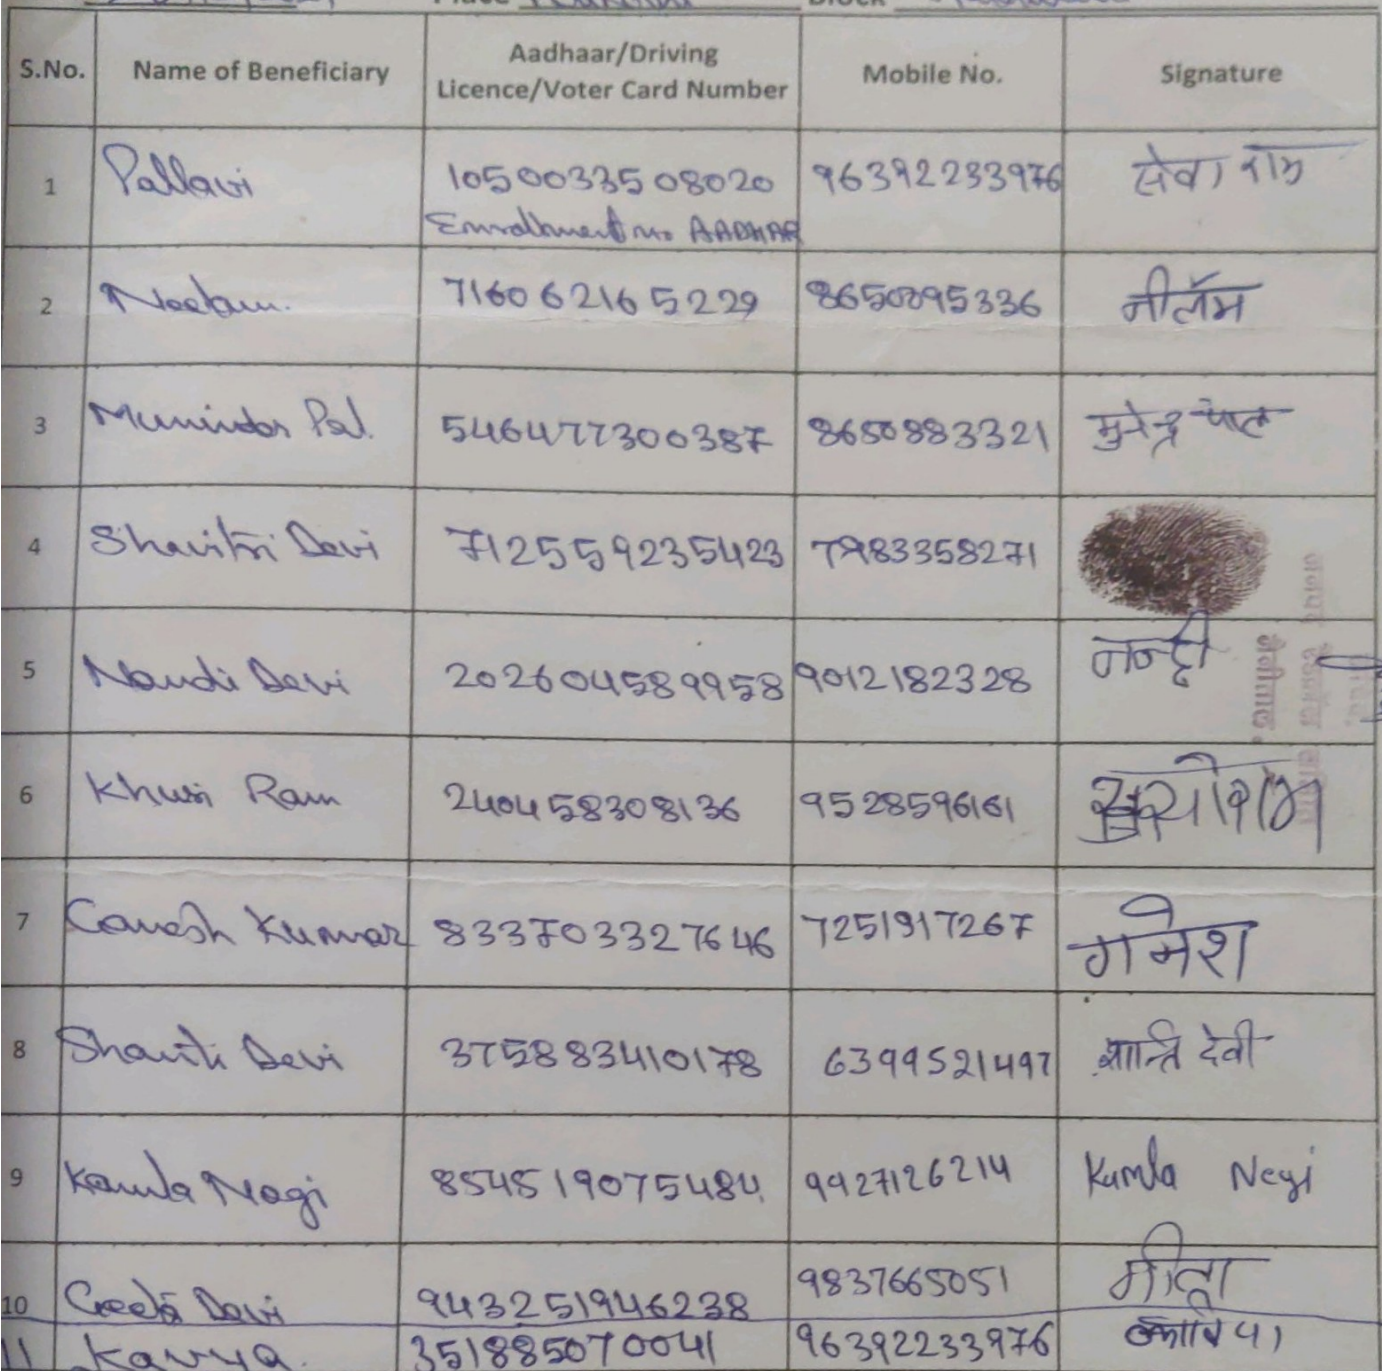 Place
Block
S.No. Name of Beneficiary Aadhaar/Driving Licence/Voter Card Number Mobile No. Signature
1 Pallavi 1050033508020 96392233976 सेवा राम
Enrollment no AADHAR
2 Neelam. 716062165229 8650895336 नीलम
3 Muninder Pal. 546477300387 8650883321 मुनेन्द्र पाल
4 Shavitri Devi 712559235423 7983358271
5 Nandi Devi 202604589958 9012182328 नन्दी
6 Khusi Ram 240458308136 9528596161
7 Ganesh Kumar 833703327646 7251917267 गनेश
8 Shanti Devi 375883410178 6399521497 शान्ति देवी
9 Kamla Nagi 854519075484 9927126214 Kamla Negi
10 Geeta Devi 943251946238 9837665051 गीता
11 Kavya. 351885070041 96392233976 काव्या